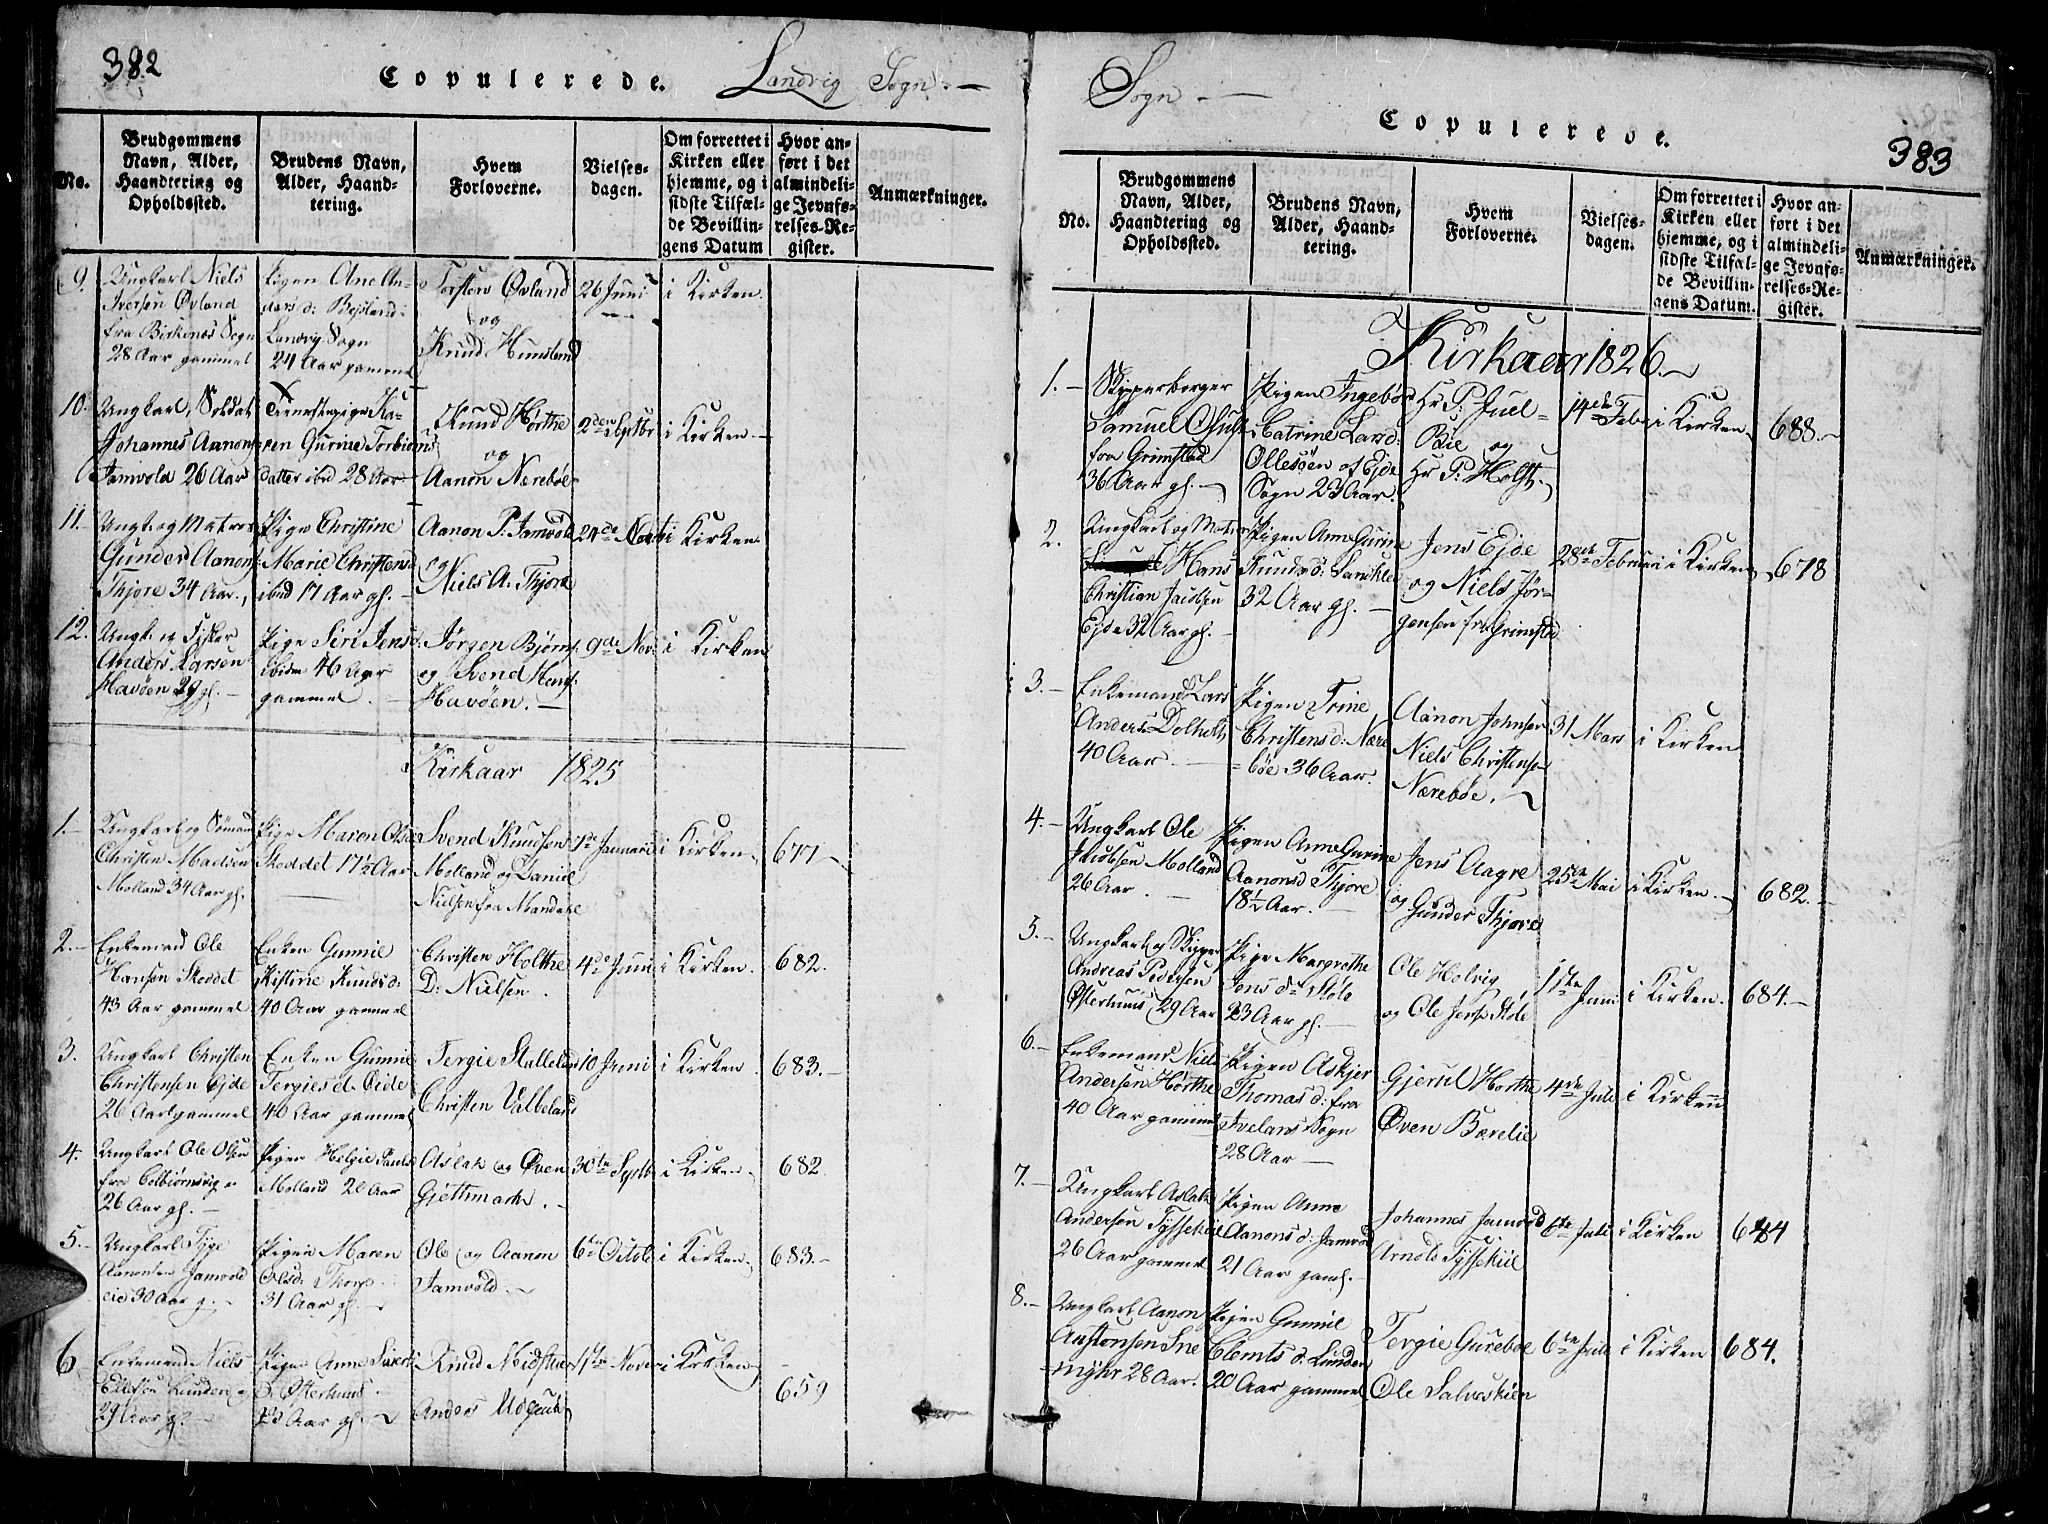 382
Copulerede.
Landvig Sogn. —
No.
Brudgommens
Navn, Alder,
Haandtering og
Opholdssted.
Brudens Navn,
Alder, Haand-
tering.
Hvem
Forloverne.
Vielses-
dagen.
Om forrettet i
Kirken eller
hjemme, og i
sidste Tilfæl-
de Bevillin-
gens Datum
Hvor an-
ført i det
almindeli-
ge Jevnfø-
relses-Re-
gister.
Anmærkninger.
9.
Ungkarl Niels
Iversen Øvland
fra Birkenes Sogn
28 Aar gammel
Pigen Ane An-
ders d: Bejland
Landvig Sogn
24 Aar gammel
Torsten Øvland
og
Knud Hunsland
26 Juni
i Kirken.
10.
Ungkarl, Soldat
Johannes Aanons
Jamvold 26 Aar
Tienestepige Ka-
ren Gurine Torbiorns
datter ibid 28 Aar
Knud Hørthe
og
Aanon Nerebøe
2den Septbr
i Kirken —
11.
Ungk. og Matros
Gunder Aanons
Thjore 34 Aar.
Pige Christine
Marie Christens
ibid 17 Aar gl.
Aanon P. Jamvold
og
Niels A. Thjore
24de Novb
i Kirken
12.
Ungk. og Fisker
Anders Larsen
Havøen 29 gl. —
Pige Siri Jensd
ibidm 46 Aar
gammel. —
Jørgen Bjørn
og Svend Hans:
Havøen. —
9de Nov.
i Kirken
Kirkaar 1825
1. —
Ungkarl og Sømand
Christen Madsen
Molland 34 Aar gl.
Pige Maren Olsd
Skeddet 17½ Aar
Svend Knudsen
Molland og Daniel
Nielsen fra Mandahl
7de Januarii
i Kirken.
677
2. —
Enkemand Ole
Hansen Skeddet
43 Aar gammel
Enken Gunnil
Kistine Knuds d:
40 Aar gammel
Christen Holthe
D: Nielsen.
4de Juni
i Kirken.
682.
3.
Ungkarl Christen
Christensen Ejde
26 Aar gammel
Enken Gunnil
Tergies d. Eide
40 Aar gammel
Tergie Stalleland
Christen Valbeland
10 Juni
i Kirken.
683. —
4.
Ungkarl Ole Olsen
fra Colbiørnsvig
26 Aar gl. —
Pigen Helgie Pauls
Molland 20 Aar
Aslak og Øven
Gjethmark. —
30te Septb
i Kirken.
682
5. —
Ungkarl Tyge
Aanonsen Jamvold
eie 30 Aar g. —
Pigen Maren
Olsd: Thorp
31 Aar gl. —
Ole og Aanon
Jamvold. —
6te Octob
i Kirken.
683. —
6
Enkemand Niels
Ellefsen Lunden
29 Aar gl. —
Pigen Anne Siverts
d. Østerhuus
23 Aar gl. —
Knud Midstue
Anders
17de Nover
i Kirken
659
Sogn. —
Copulerede.
383
No.
Brudgommens
Navn, Alder,
Haandtering og
Opholdssted.
Brudens Navn,
Alder, Haand-
tering.
Hvem
Forloverne.
Vielses-
dagen.
Om forrettet i
Kirken eller
hjemme, og i
sidste Tilfæl-
de Bevillin-
gens Datum.
Hvor an-
ført i det
almindeli-
ge Jevnfø-
relses-Re-
gister.
Anmærkninger.
Kirkaar 1826. —
1. —
Skipperborger
Samuel
fra Grimstad
36 Aar gl. —
Pigen Ingebør
Catrine Lars d:
Ollesøen af Ejde
Sogn 23 Aar.
Hr P: Juel
Bie og
Hr P: Holst.
14de Feb
i Kirken.
688. —
2.
Ungkarl og Matros
Hans
Christian Jacobsen
Ejde 32 Aar gl. —
Pigen Anne Gurine
Knuds d:
32 Aar gl. —
Jens Ejde
og Niels Jør-
gensen fra Grimsta
28de Februar
i Kirken
678
3. —
Enkemand Lars
Anders: Dolholt
40 Aar. —
Pigen Trine
Christens d: Nære
bøe 36 Aar.
Aanon Johnsen
Niels Christense
Nærebøe.
31 Mars
i Kirken
4. —
Ungkarl Ole
Jacobsen Molland
26 Aar. —
Pigen Anne Gurine
Aanonsd Thjore
18½ Aar. —
Jens Aagre
og Gunder Thjore
25de Mai
i Kirken.
682. —
5. —
Ungkarl og Skipper
Andreas Pedersen
Østerhuus 29 Aar
Pige Margrethe
Jens d: Støle
23 Aar gl. —
Ole Holvig
og Ole Jens: Støle
1ste Juni
i Kirken.
684. —
6. —
Enkemand Niels
Andersen Hørthe
40 Aar gammel
Pigen Askjer
Thomas d: fra
Ivelans Sogn
28 Aar —
Gjerul Horthe
Øven Bærelie
4de Juli
i Kirken
7. —
Ungkarl Aslak
Andersen Tyssekiil
26 Aar gammel
Pigen Anne
Aanons d: Jamvold
21 Aar gaml. —
Johannes Jamvold
Arnold Tyssekiil
6te Juli
i Kirken
684
8. —
Ungkarl Aanon
Austensen Sne
myhr 28 Aar.
Pigen Gunnil
Clemts d: Lunden
20 Aar gammel
Tergie Gurebøe
Ole Salveskien
6te Juli
i Kirken
684.